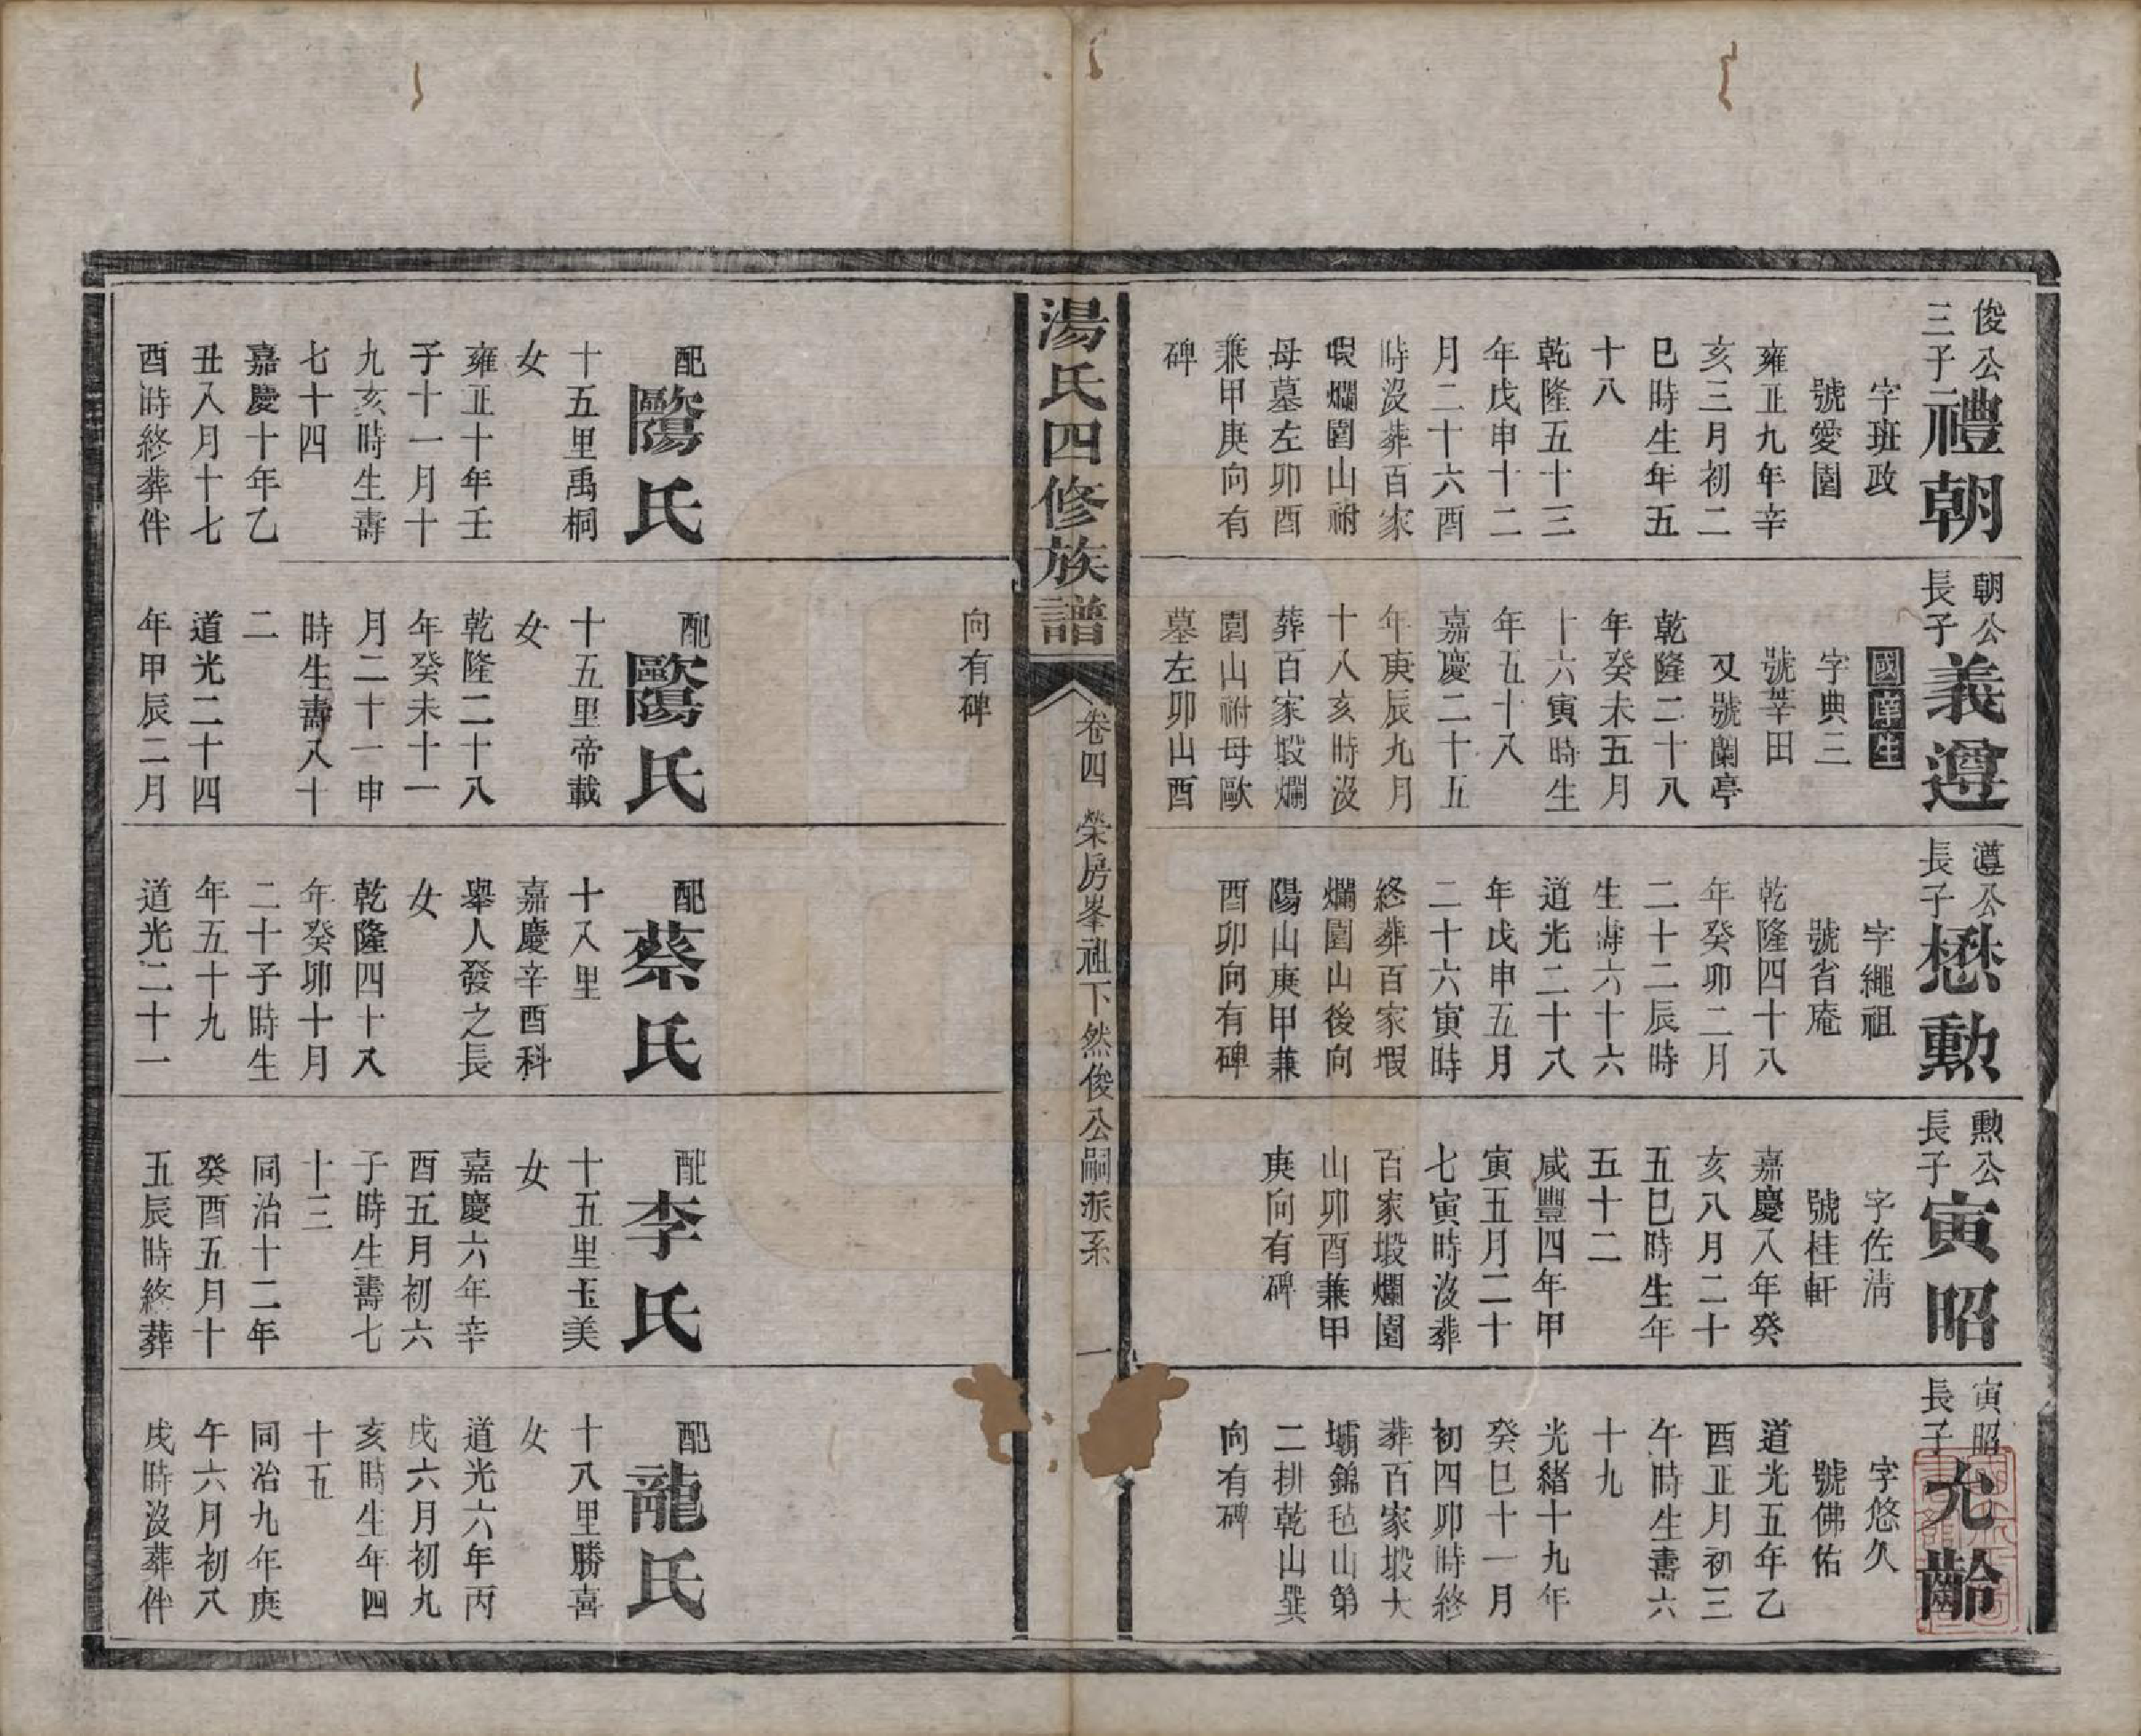 俊公
三子
禮朝
字班政
號愛園
雍正九年辛
亥三月初二
巳時生年五
十八
乾隆五十三
年戊申十二
月二十六酉
時沒葬百家
塅爛園山祔
母墓左卯酉
兼甲庚向有
碑
朝公
長子
義遵
國庠生
字典三
號莘田
又號蘭亭
乾隆二十八
年癸未五月
十六寅時生
年五十八
嘉慶二十五
年庚辰九月
十八亥時沒
葬百家塅爛
園山祔母歐
墓左卯山酉
向有碑
遵公
長子
懋勳
字繩祖
號省庵
乾隆四十八
年癸卯二月
二十二辰時
生壽六十六
道光二十八
年戊申五月
二十六寅時
終葬百家塅
爛園山後向
陽山庚甲兼
酉卯向有碑
勲公
長子
寅昭
字佐清
號桂軒
嘉慶八年癸
亥八月二十
五巳時生年
五十二
咸豐四年甲
寅五月二十
七寅時沒葬
百家塅爛園
山卯酉兼甲
庚向有碑
寅昭
長子
允齡
字悠久
號佛佑
道光五年乙
酉正月初三
午時生壽六
十九
光緒十九年
癸巳十一月
初四卯時終
葬百家塅大
壩錦毡山第
二排乾山巽
向有碑
湯氏四修族譜
卷四
榮房峯祖下然俊公嗣派系
一
配
歐陽氏
十五里禹桐
女
雍正十年壬
子十一月十
九亥時生壽
七十四
嘉慶十年乙
丑八月十七
酉時終葬伴
配
歐陽氏
十五里帝載
女
乾隆二十八
年癸未十一
月二十一申
時生壽八十
二
道光二十四
年甲辰二月
配
蔡氏
十八里
嘉慶辛酉科
舉人發之長
女
乾隆四十八
年癸卯十月
二十子時生
年五十九
道光二十一
配
李氏
十五里玉美
女
嘉慶六年辛
酉五月初六
子時生壽七
十三
同治十二年
癸酉五月十
五辰時終葬
配
龍氏
十八里勝喜
女
道光六年丙
戌六月初九
亥時生年四
十五
同治九年庚
午六月初八
戌時沒葬伴